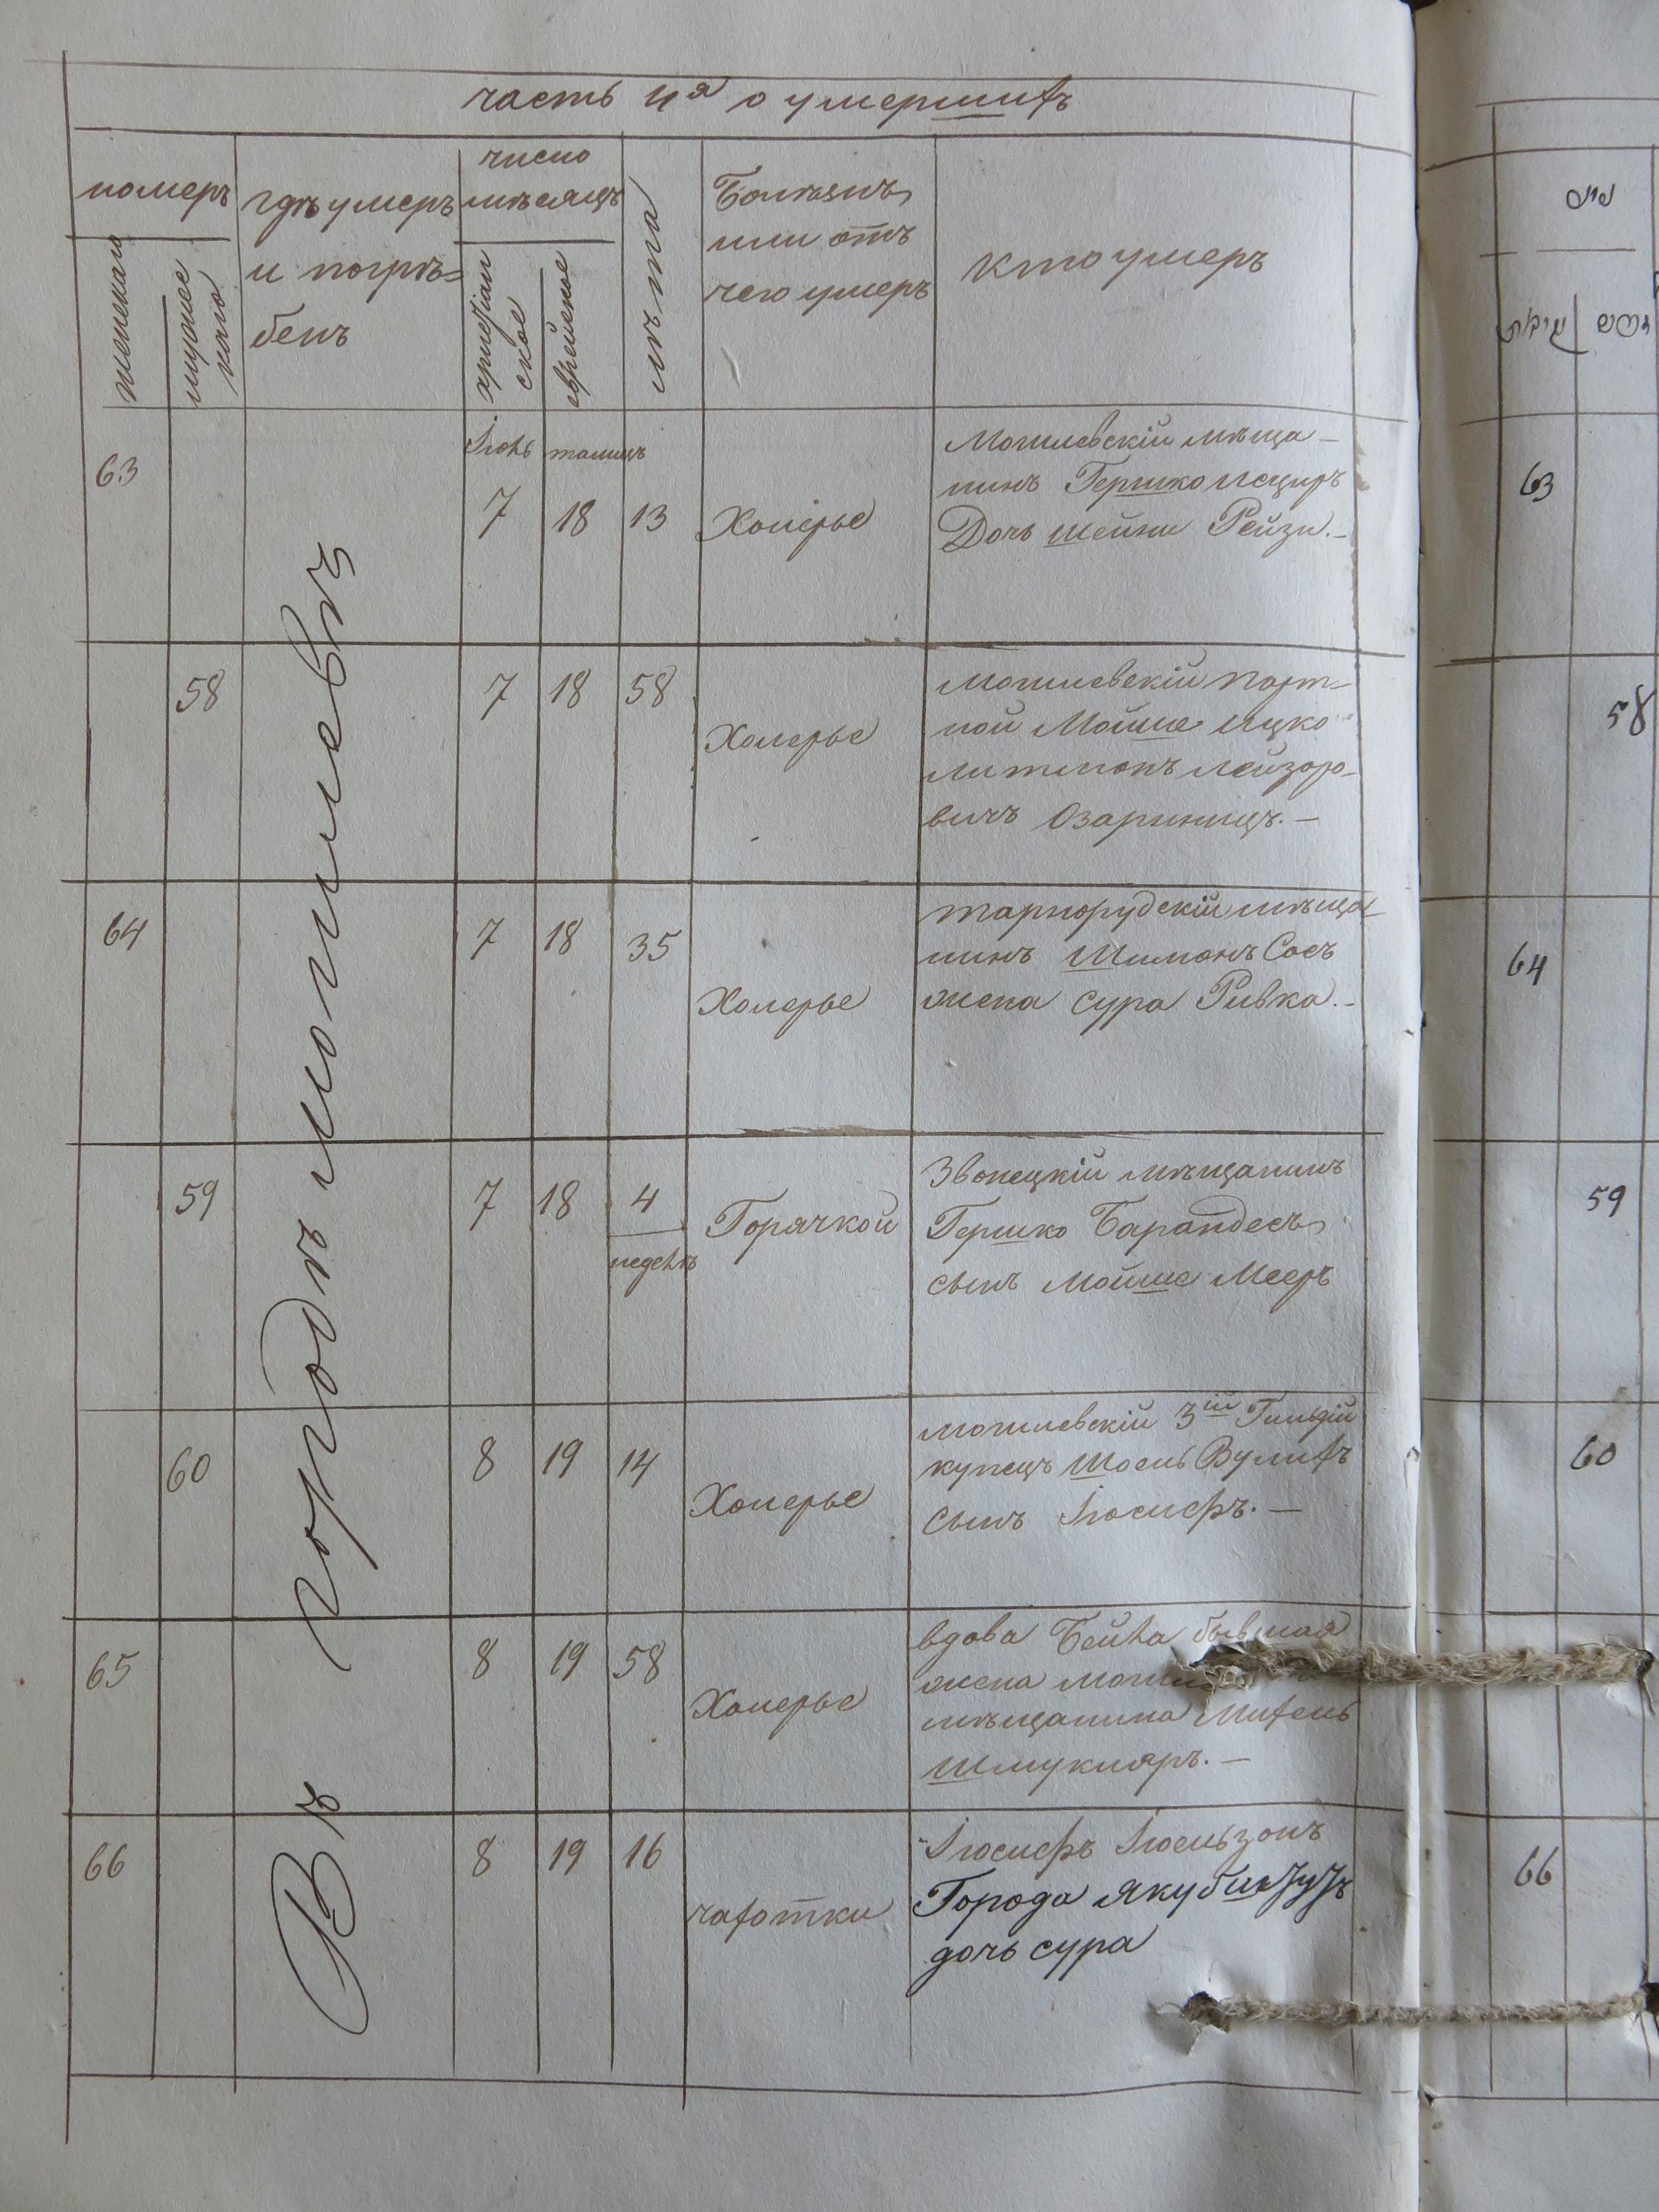 часть 4я о умершихъ
номеръ
женскаго
мужес
каго
гдѣ умеръ
и погрѣ=
бенъ
число
мѣсяцъ
христіан
ское
еврейское
лѣта
Болѣзнь
или отъ
чего умеръ
кто умеръ
Въ городѣ могилевѣ
Іюнь тамицъ
63 7 18 13 Холерье
Могилевскій мѣща–
нинъ Гершко
Дочь Шейни Рейзи.–
58 7 18 58 Холерье
могилевскій порт–
ной Мойше ицко
литманъ лейзоро–
вичъ Озариницъ.–
64 7 18 35 Холерье
тарнорудскій мѣща–
нинъ Шимонъ Сосъ
жена сура Ривка.–
59 7 18 4 недель Горячкой
Звонецкій мѣщанинъ
Гершко Барандесъ
сынъ мойше Мееръ
60 8 19 14 Холерье
могилевскій 3ій Гильдій
купецъ Шоель Вулихъ
сынъ Іосифъ.–
65 8 19 58 Холерье
вдова Бейла бывшая
жена
мѣщанина Михель
Шмукляръ.–
66 8 19 16 чахотки
Іосифъ Іоельзонъ
Города
дочь сура
63
58
64
59
60
66